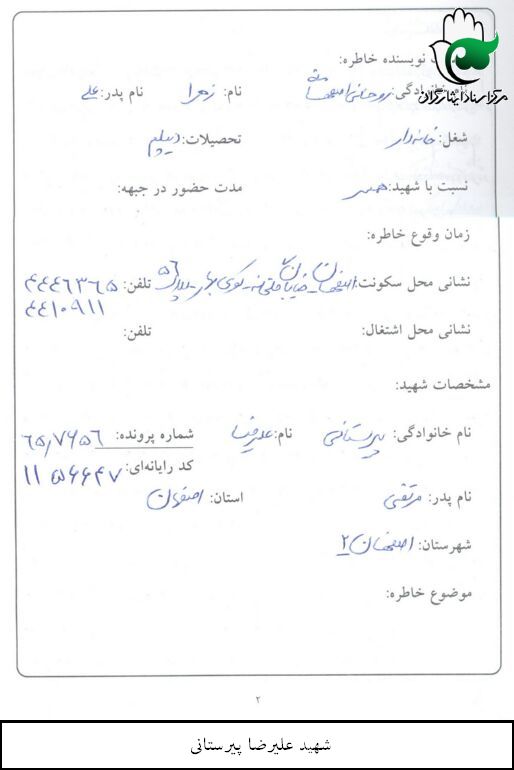 مرکز اسناد ایثارگران
نویسنده خاطره:
نام خانوادگی: روحانی اصفهانی نام: زهرا نام پدر: علی
شغل: خانه‌دار تحصیلات: دیپلم
نسبت با شهید: همسر مدت حضور در جبهه:
زمان وقوع خاطره:
نشانی محل سکونت: اصفهان - خیابان - کوی بهار - پلاک ۵۶ تلفن: ۴۴۴۶۳۶۵
۴۴۱۰۹۱۱
نشانی محل اشتغال: تلفن:
مشخصات شهید:
نام خانوادگی: پیرستانی نام: علیرضا شماره پرونده: ۶۵٫۷۶۵۶
کد رایانه‌ای: ۱۱۵۶۶۴۷
نام پدر: مرتضی استان: اصفهان
شهرستان: اصفهان ۲
موضوع خاطره:
۲
شهید علیرضا پیرستانی